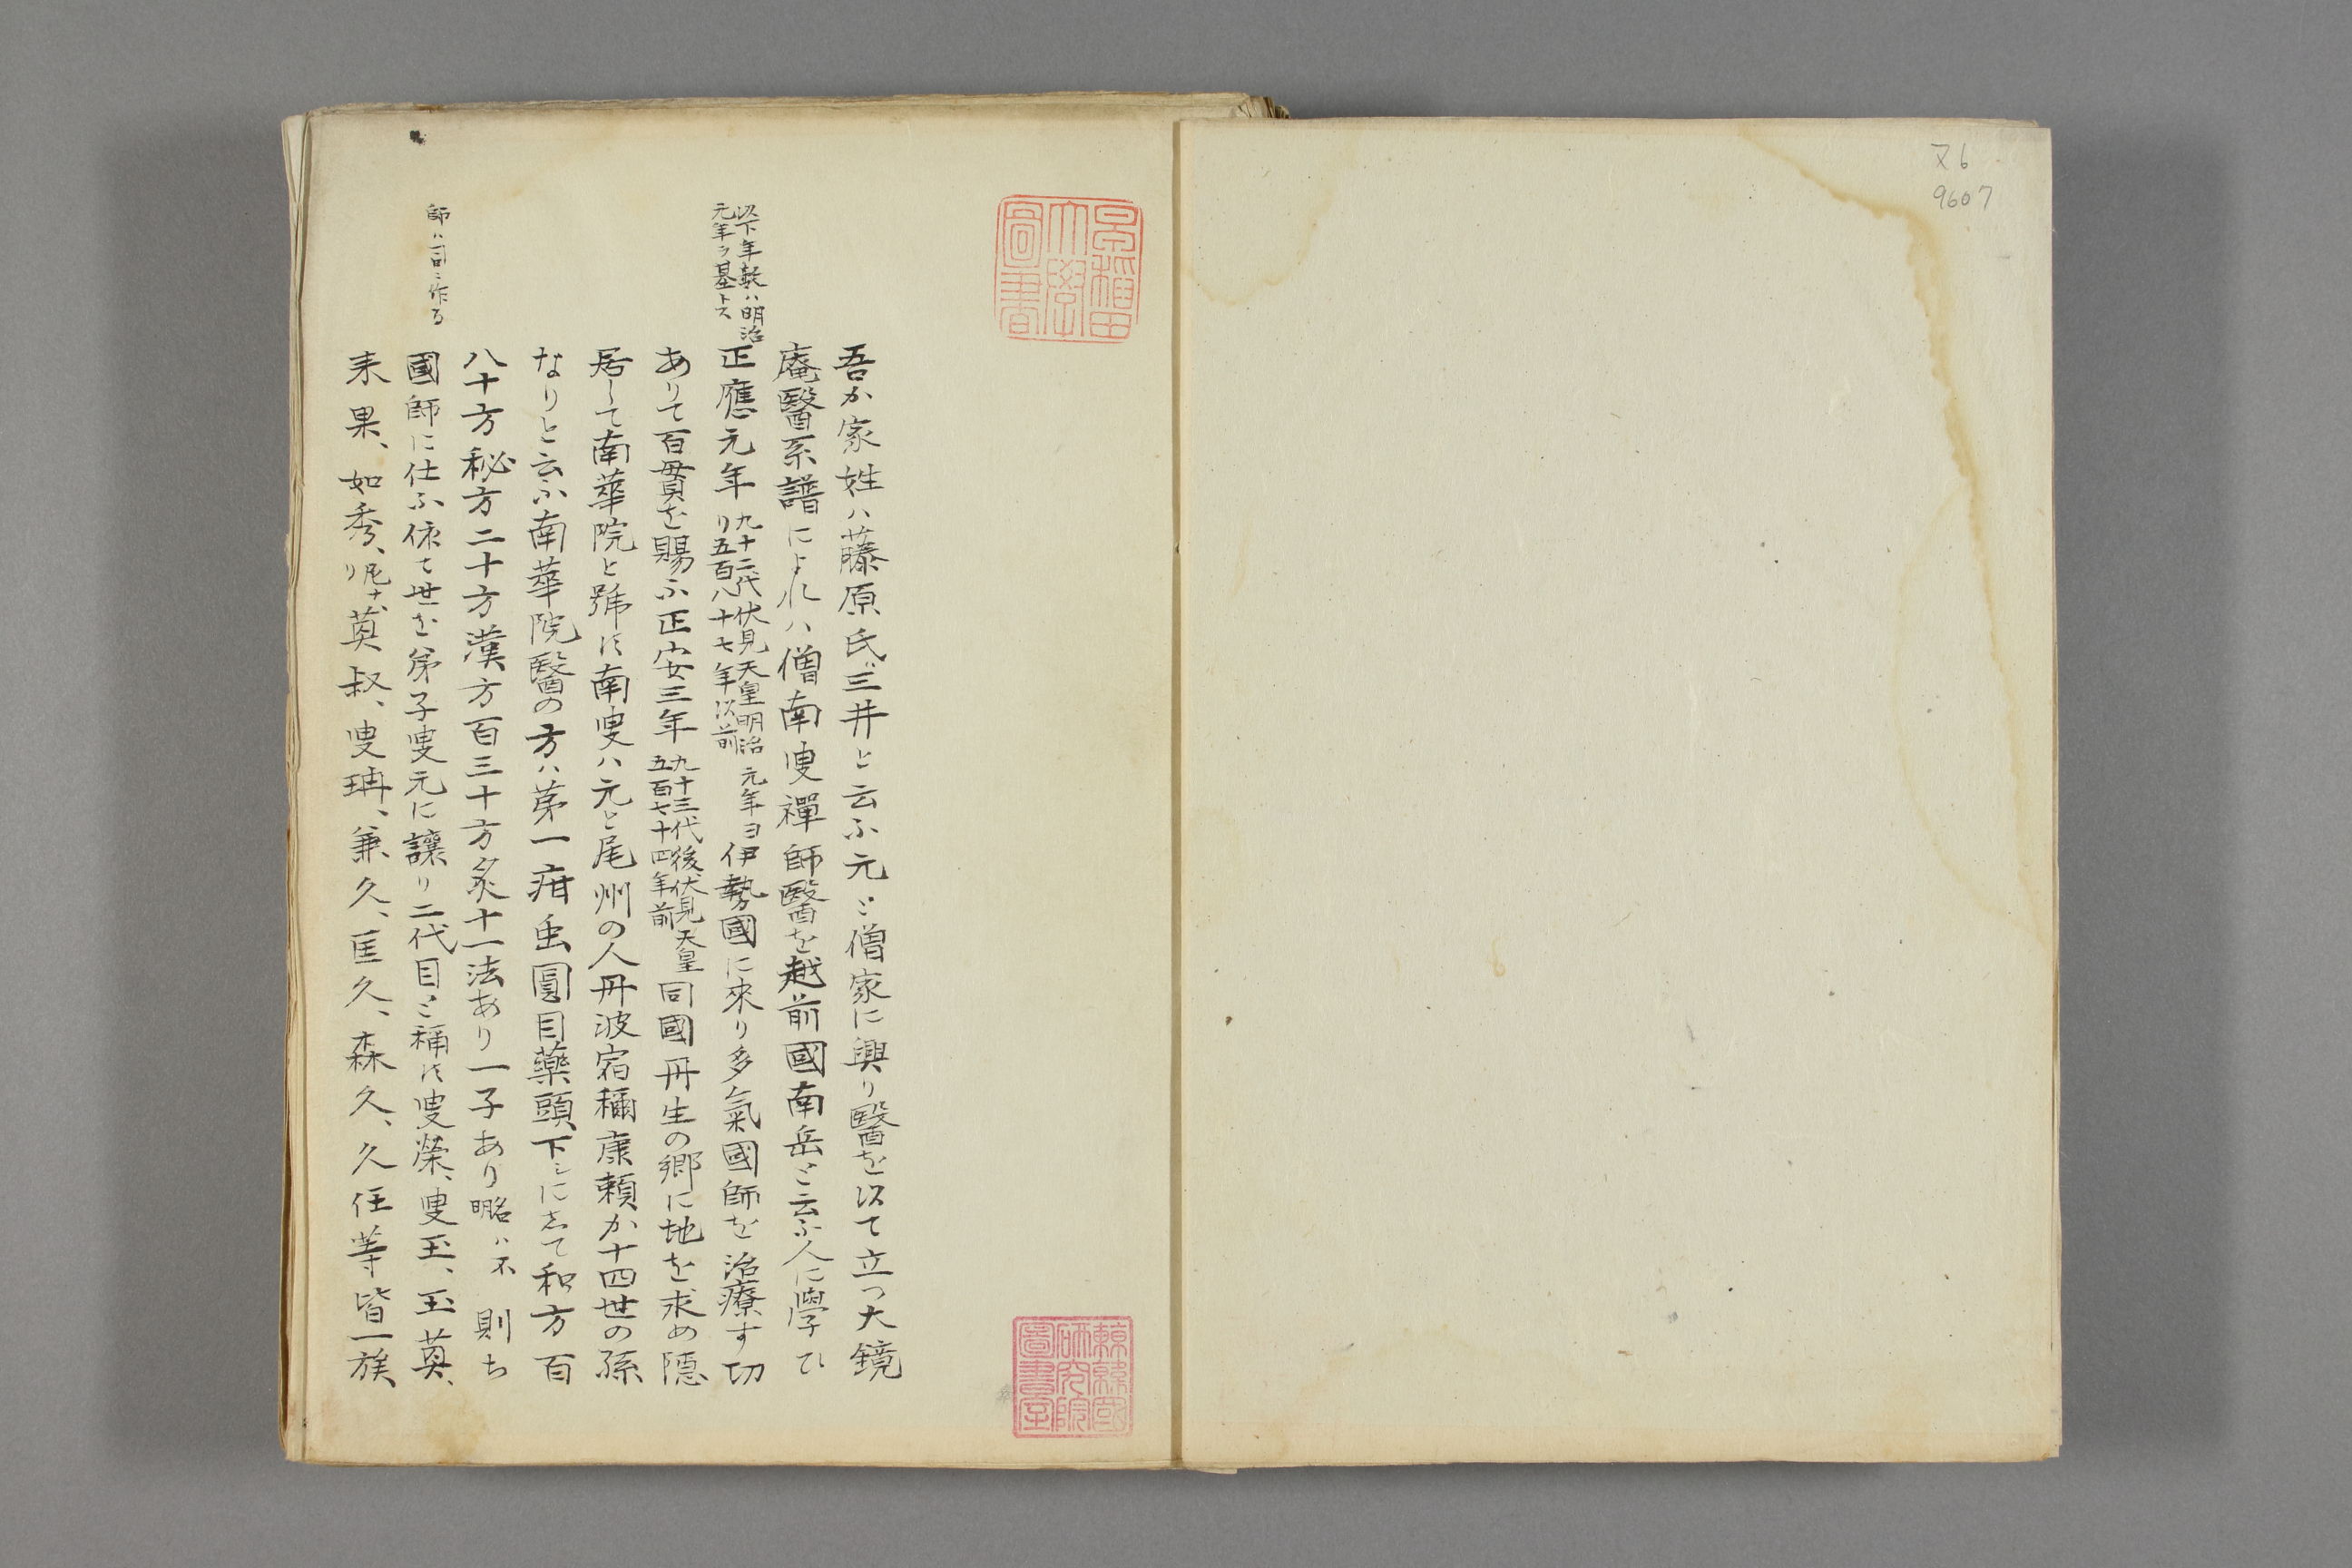 又6
9607
早稲田大學圖書
吾か家姓ハ藤原氏ハ三井と云ふ元と僧家に興り醫を以て立つ大鏡
庵醫系譜によれハ僧南叟禪師醫を越前國南岳と云ふ人に學ひ
以下年數ハ明治
元年ヲ基トス
正應元年 九十二代伏見天皇明治元年ヨ
リ五百八十七年以前 伊勢國に來り多氣國師を治療す切
ありて百貫を賜ふ正安三年 九十三代後伏見天皇
五百七十四年前 同國丹生の郷に地を求め隱
居して南華院と號す南叟ハ元と尾州の人丹波宿禰康頼か十四世の孫
なりと云ふ南華院醫の方ハ第一疳虫圓目藥頭下シにして和方百
八十方秘方二十方漢方百三十方炙十一法あり一子あり名ハ不明 則ち
師ハ司ニ作る
國師に仕ふ依て世を弟子叟元に讓り二代目と稱す叟榮、叟玉、玉英、
耒果、如秀、尼ナリ 英叔、叟琄、兼久、匡久、森久、久任等皆一族